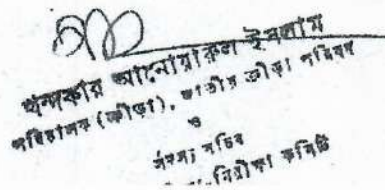 খন্দকার আনোয়ারুল ইসলাম
পরিচালক (ক্রীড়া), জাতীয় ক্রীড়া পরিষদ
ও
সদস্য সচিব
নিরীক্ষা কমিটি